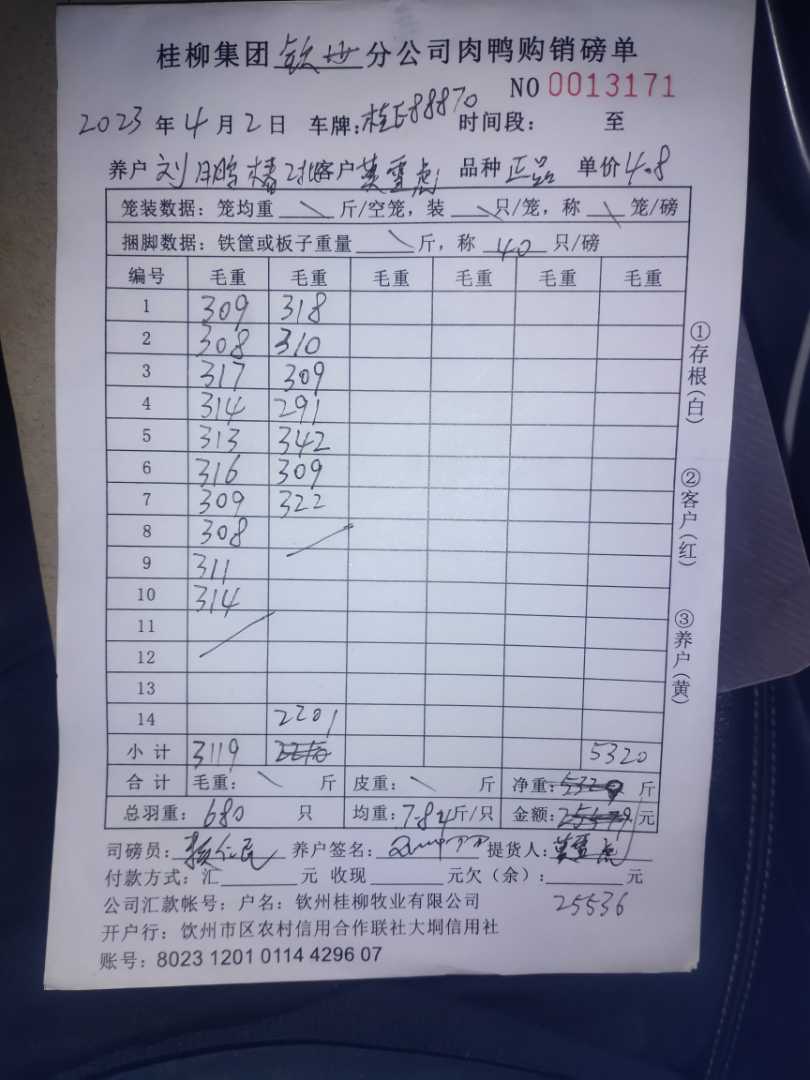 桂柳集团钦州分公司肉鸭购销磅单
NO 0013171
2023年4月2日 车牌:桂E88870 时间段: 至
养户 刘鹏椿 客户 黄雪彪 品种 正品 单价 4.8
笼装数据:笼均重 \ 斤/空笼,装 \ 只/笼,称 \ 笼/磅
捆脚数据:铁筐或板子重量 \ 斤,称 40 只/磅
编号 毛重 毛重 毛重 毛重 毛重 毛重
1 309 318
2 308 310
3 317 309
4 314 291
5 313 342
6 316 309
7 309 322
8 308
9 311
10 314
11
12
13
14 2201
小计 3119 5320
合计 毛重: \ 斤 皮重: \ 斤 净重:5320 斤
总羽重: 680 只 均重:7.84斤/只 金额: 元
司磅员: 养户签名: 提货人:黄雪彪
付款方式:汇 元 收现 元欠(余): 元
25536
公司汇款帐号:户名:钦州桂柳牧业有限公司
开户行:钦州市区农村信用合作联社大垌信用社
账号:8023 1201 0114 4296 07
①存根(白)
②客户(红)
③养户(黄)